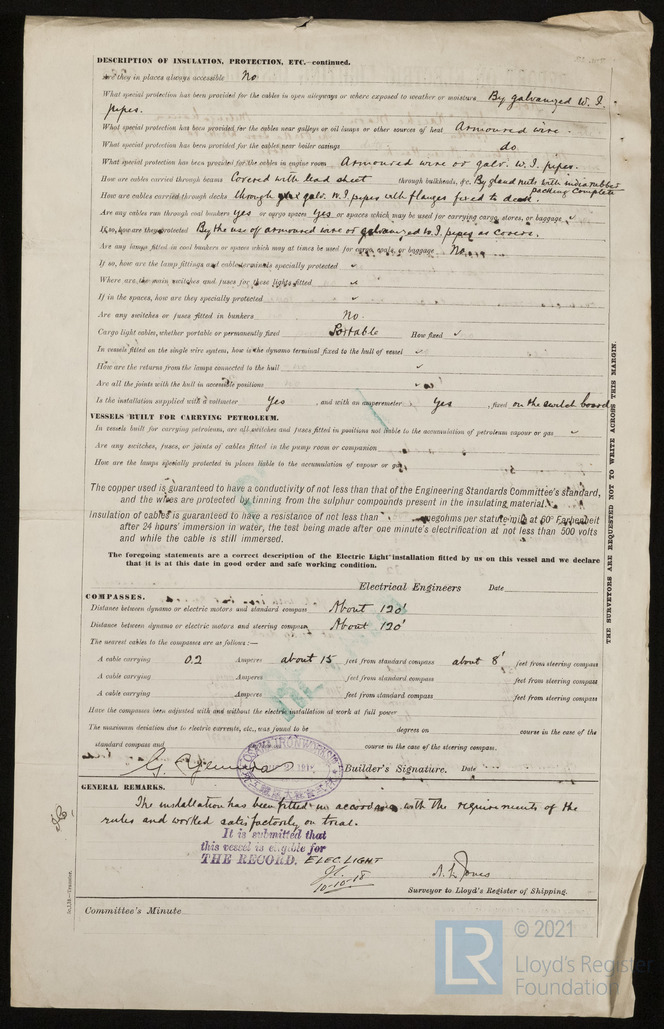 DESCRIPTION OF INSULATION, PROTECTION, ETC.—continued.
Are they in places always accessible No
What special protection has been provided for the cables in open alleyways or where exposed to weather or moisture By galvanized W. I.
pipes.
What special protection has been provided for the cables near galleys or oil lamps or other sources of heat Armoured wire.
What special protection has been provided for the cables near boiler casings do
What special protection has been provided for the cables in engine room Armoured wire or galv. W. I. pipes.
How are cables carried through beams Covered with lead sheet through bulkheads, &c. By gland nuts with india rubber
packing complete
How are cables carried through decks through galv. W. I pipes with flanges fixed to deck.
Are any cables run through coal bunkers yes or cargo spaces Yes or spaces which may be used for carrying cargo, stores, or baggage ✓
If so, how are they protected By the use of armoured wire or galvanized W. I. pipes as covers.
Are any lamps fitted in coal bunkers or spaces which may at times be used for cargo, coals, or baggage No
If so, how are the lamp fittings and cable terminals specially protected ✓
Where are the main switches and fuses for these lights fitted ✓
If in the spaces, how are they specially protected ✓
Are any switches or fuses fitted in bunkers No
Cargo light cables, whether portable or permanently fixed Portable How fixed ✓
In vessels fitted on the single wire system, how is the dynamo terminal fixed to the hull of vessel ✓
How are the returns from the lamps connected to the hull ✓
Are all the joints with the hull in accessible positions ✓
Is the installation supplied with a voltmeter Yes, and with an amperemeter Yes, fixed on the switch board
VESSELS BUILT FOR CARRYING PETROLEUM.
In vessels built for carrying petroleum, are all switches and fuses fitted in positions not liable to the accumulation of petroleum vapour or gas ✓
Are any switches, fuses, or joints of cables fitted in the pump room or companion
How are the lamps specially protected in places liable to the accumulation of vapour or gas
The copper used is guaranteed to have a conductivity of not less than that of the Engineering Standards Committee's standard,
and the wires are protected by tinning from the sulphur compounds present in the insulating material.
Insulation of cables is guaranteed to have a resistance of not less than megohms per statute mile at 60° Fahrenheit
after 24 hours' immersion in water, the test being made after one minute's electrification at not less than 500 volts
and while the cable is still immersed.
The foregoing statements are a correct description of the Electric Light installation fitted by us on this vessel and we declare
that it is at this date in good order and safe working condition.
Electrical Engineers Date
COMPASSES.
Distance between dynamo or electric motors and standard compass About 120'
Distance between dynamo or electric motors and steering compass About 120'
The nearest cables to the compasses are as follows:—
A cable carrying 0.2 Amperes about 15 feet from standard compass about 8' feet from steering compass
A cable carrying Amperes feet from standard compass feet from steering compass
A cable carrying Amperes feet from standard compass feet from steering compass
Have the compasses been adjusted with and without the electric installation at work at full power
The maximum deviation due to electric currents, etc., was found to be degrees on course in the case of the
standard compass and course in the case of the steering compass.
Builder's Signature. Date
GENERAL REMARKS.
The installation has been fitted in accordance with the requirements of the
rules and worked satisfactorily on trial.
It is submitted that
this vessel is eligible for
THE RECORD. ELEC. LIGHT
10-10-18
Surveyor to Lloyd's Register of Shipping.
Committee's Minute
THE SURVEYORS ARE REQUESTED NOT TO WRITE ACROSS THIS MARGIN.
LR
© 2021
Lloyd's Register
Foundation